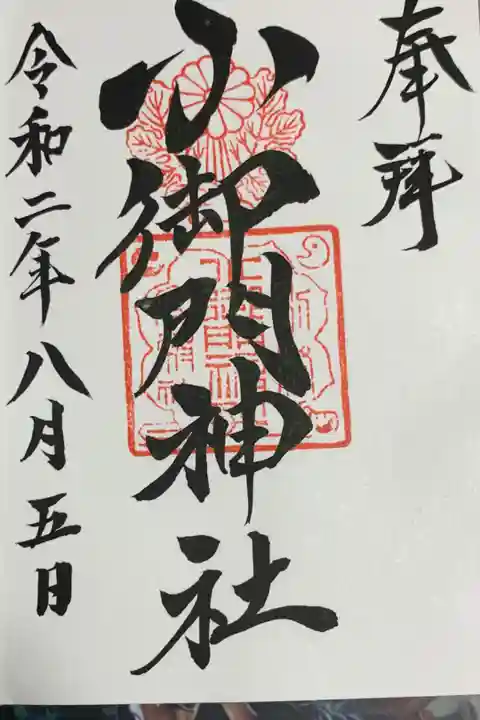 奉拝
小御門神社
令和二年八月五日